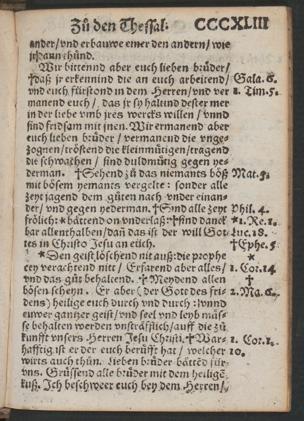 Zů den Thessal. CCCXLIII
ander/ vnd erbauwe einer den andern/ wie
jr dann thůnd.
Wir bittennd aber euch lieben brůder/
†daß jr erkennind die an euch arbeitend/ Gala. 6.
vnd euch fürstond in dem Herren/ vnd ver 1. Tim. 5.
manend euch/ das jr sy haltind dester mer
in der liebe vmb jres wercks willen/ vnnd
sind fridsam mit jnen. Wir ermanend aber
euch lieben brůder/ vermanend die vnge-
zognen/ tröstend die kleinmütigen/ tragend
die schwachen/ sind duldmütig gegen ye-
derman. †Sehend zů das niemants böß Mat. 5.
mit bösem yemants vergelte: sonder alle
zeyt jagend dem gůten nach vnder einan-
der/ vnd gegen yederman. †Sind alle zeyt Phil. 4.
frölich: *bättend on vnderlaß: †sind danck *1. Re. 1.
bar allenthalben/ dañ das ist der will Got Luc. 18.
tes in Christo Jesu an eüch. †Ephe. 5
*Den geist löschend nit auß: die prophe *
cey verachtend nitt/ Erfarend aber alles/ 1. Cor. 14
vnd das gůt behaltend. †Meydend allen †
bösen scheyn. Er aber (der Gott des fri- 2. Ma. 6.
dens) heilige euch durch vnd durch: vnnd
euwer gantzer geist/ vnd seel vnd leyb můs-
se behalten werden vnsträfflich/ auff die zů
kunfft vnsers Herren Jesu Christi. †War- 1. Cor. 1.
hafftig ist er der euch berüfft hat/ welcher 10.
wirts auch thůn. Lieben brůder bättēd für
vns. Grüssend alle brůder mit dem heiligē
kuß. Ich beschweer euch bey dem Herren/